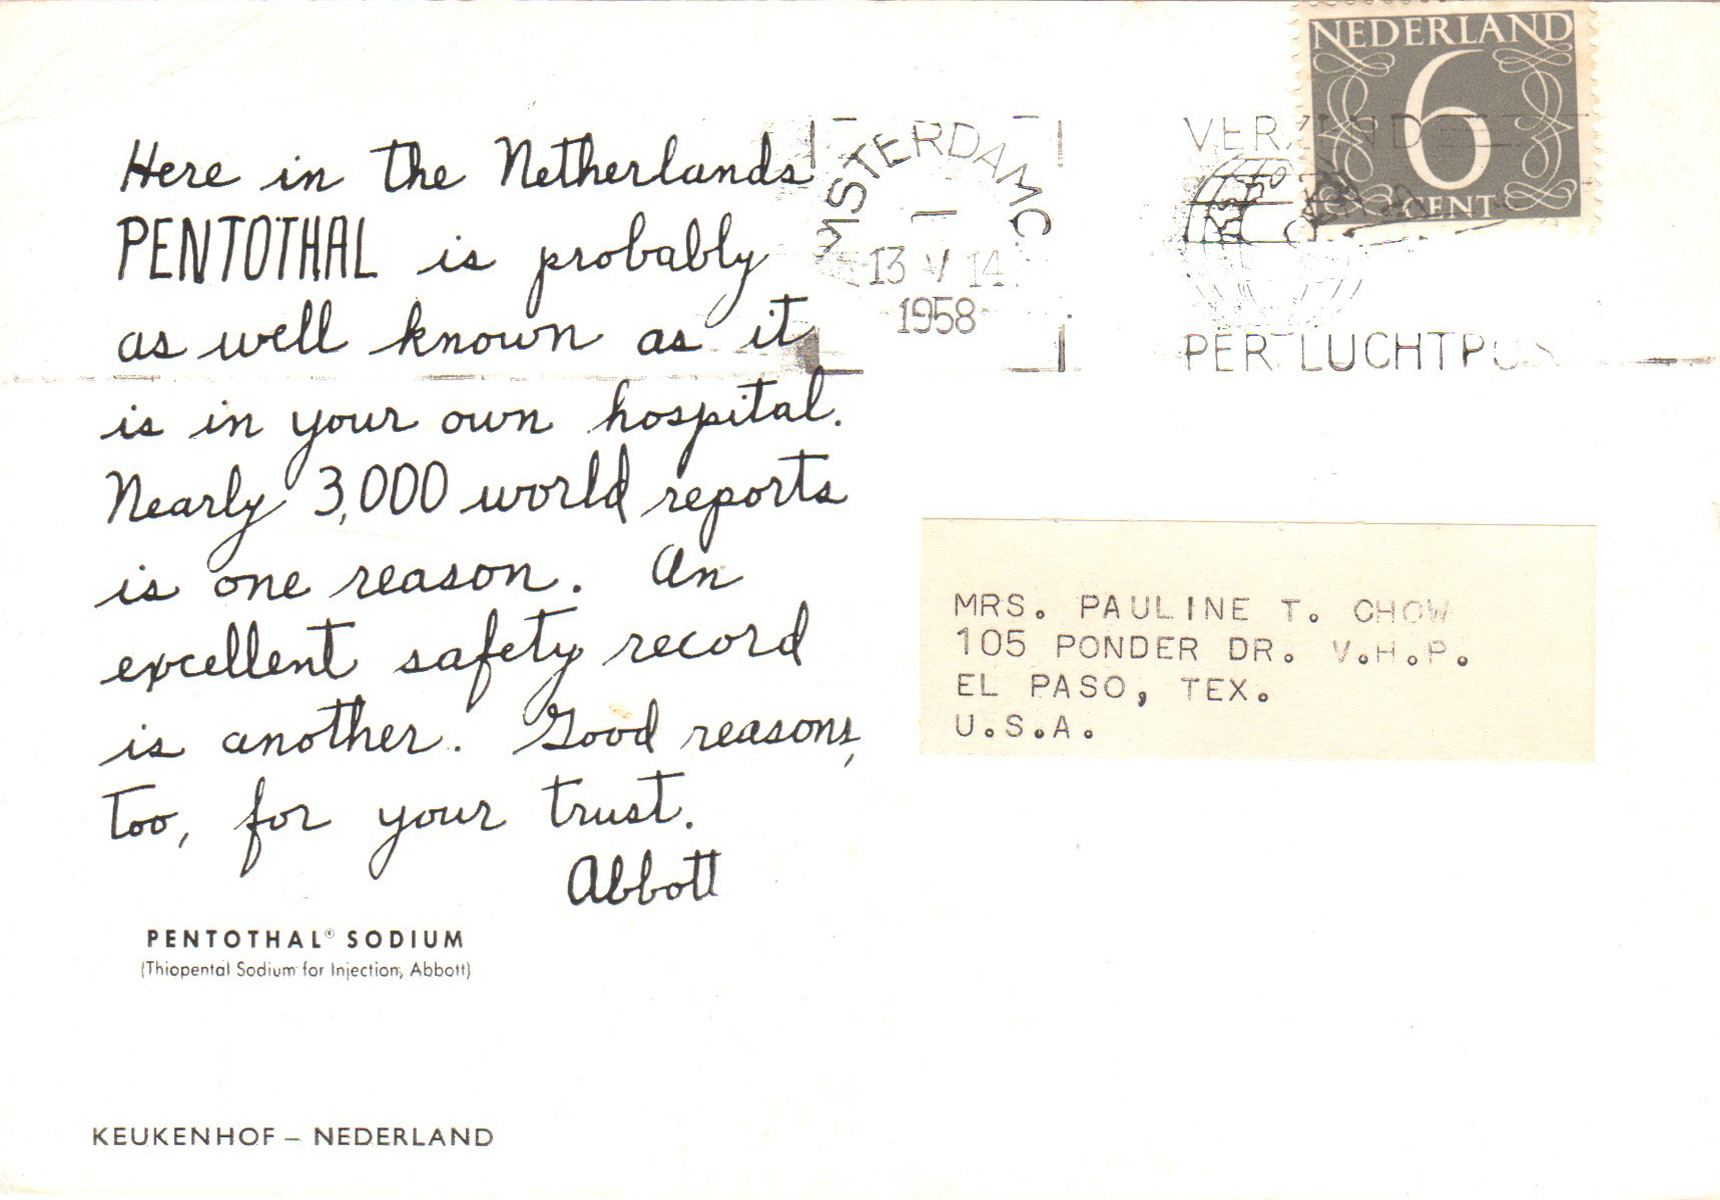 Here in the Netherlands
PENTOTHAL is probably
as well known as it
is in your own hospital.
Nearly 3,000 world reports
is one reason. An
excellent safety record
is another. Good reasons,
too, for your trust.
Abbott
PENTOTHAL® SODIUM
(Thiopental Sodium for Injection, Abbott)
KEUKENHOF – NEDERLAND
MSTERDAM C
1
13 V 14
1958
VERZEND
PER LUCHTPOS
NEDERLAND
6
CENT
MRS. PAULINE T. CHOW
105 PONDER DR. V.H.P.
EL PASO, TEX.
U.S.A.